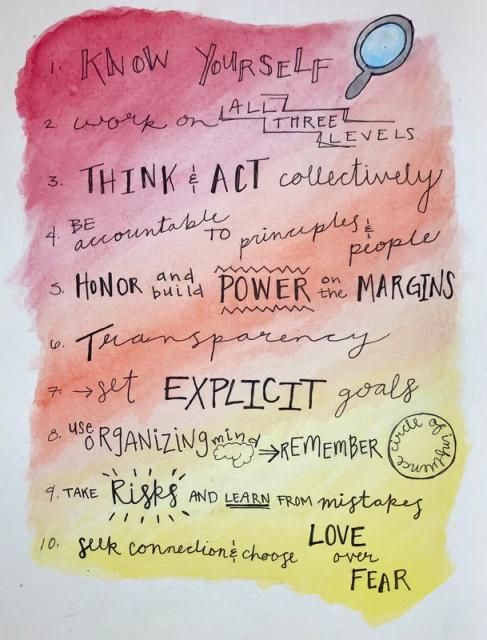 1. KNOW YOURSELF
2. work on ALL THREE LEVELS
3. THINK & ACT collectively
4. BE accountable TO principles & people
5. HONOR and build POWER on the MARGINS
6. Transparency
7. → set EXPLICIT goals
8. use ORGANIZING mind ⇒ REMEMBER circle of influence
9. TAKE Risks AND LEARN FROM mistakes
10. seek connection & choose LOVE over FEAR